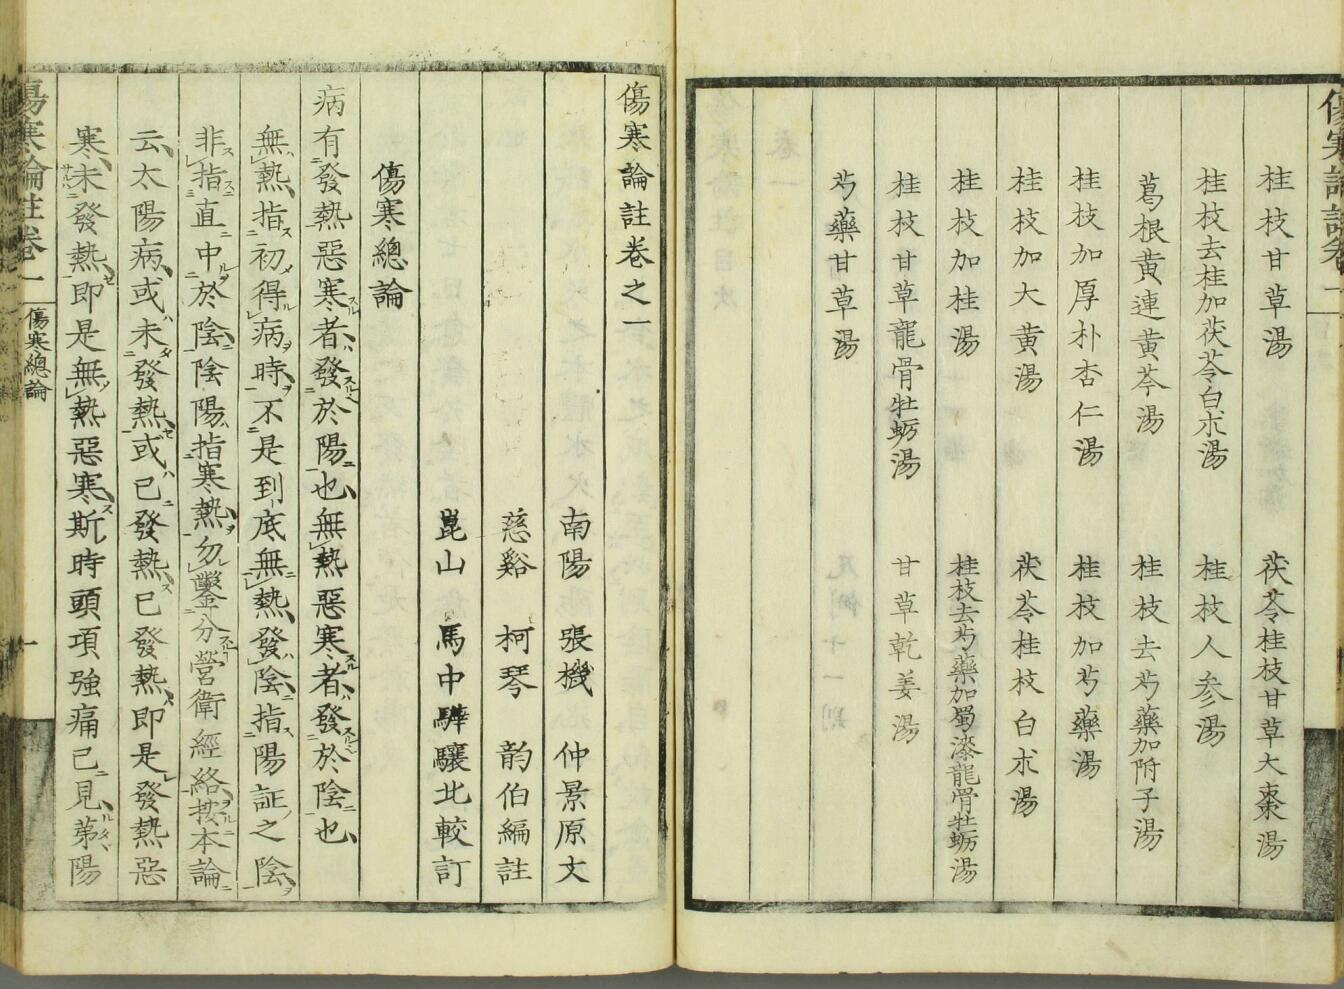 桂枝甘草湯　茯苓桂枝甘草大棗湯
桂枝去桂加茯苓白朮湯　桂枝人参湯
葛根黄連黄芩湯　桂枝去芍藥加附子湯
桂枝加厚朴杏仁湯　桂枝加芍藥湯
桂枝加大黄湯　茯苓桂枝白朮湯
桂枝加桂湯　桂枝去芍藥加蜀漆龍骨牡蛎湯
桂枝甘草龍骨牡蛎湯　甘草乾姜湯
芍藥甘草湯
傷寒論註卷之一
南陽　張機　仲景原文
慈谿　柯琴　韵伯編註
崑山　馬中驊驤北較訂
傷寒總論
病有發熱惡寒者發於陽也無熱惡寒者發於陰也
無熱指初得病時不是到底無熱發陰指陽証之陰
非指直中於陰陰陽指寒熱勿鑿分營衛經絡按本論
云太陽病或未發熱或已發熱已發熱即是發熱惡
寒未發熱即是無熱惡寒斯時頭項強痛已見第陽
傷寒論註卷一　傷寒總論　一